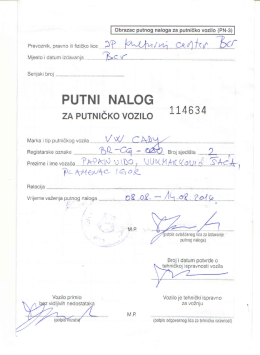 Obrazac putnog naloga za putničko vozilo (PN-3)
Prevoznik, pravno ili fizičko lice JP Kulturni centar Bar
Mjesto i datum izdavanja Bar
Serijski broj
PUTNI NALOG
ZA PUTNIČKO VOZILO
114634
Marka i tip putničkog vozila VW CADY
Registarske oznake BR-CG- Broj sjedišta 2
Prezime i ime vozača PAPAN VIDO, VUKMARKOVIĆ SAŠA,
PLAMENAC IGOR
Relacija
Vrijeme važenja putnog naloga 08.08. - 14.08.2016.
M.P.
(potpis ovlašćenog lica za izdavanje
putnog naloga)
Broj i datum potvrde o
tehničkoj ispravnosti vozila
Vozilo primio
bez vidljivih nedostataka
Vozilo je tehnički ispravno
za vožnju
M.P.
(potpis vozača)
(potpis odgovornog lica za tehničku ispravnost)